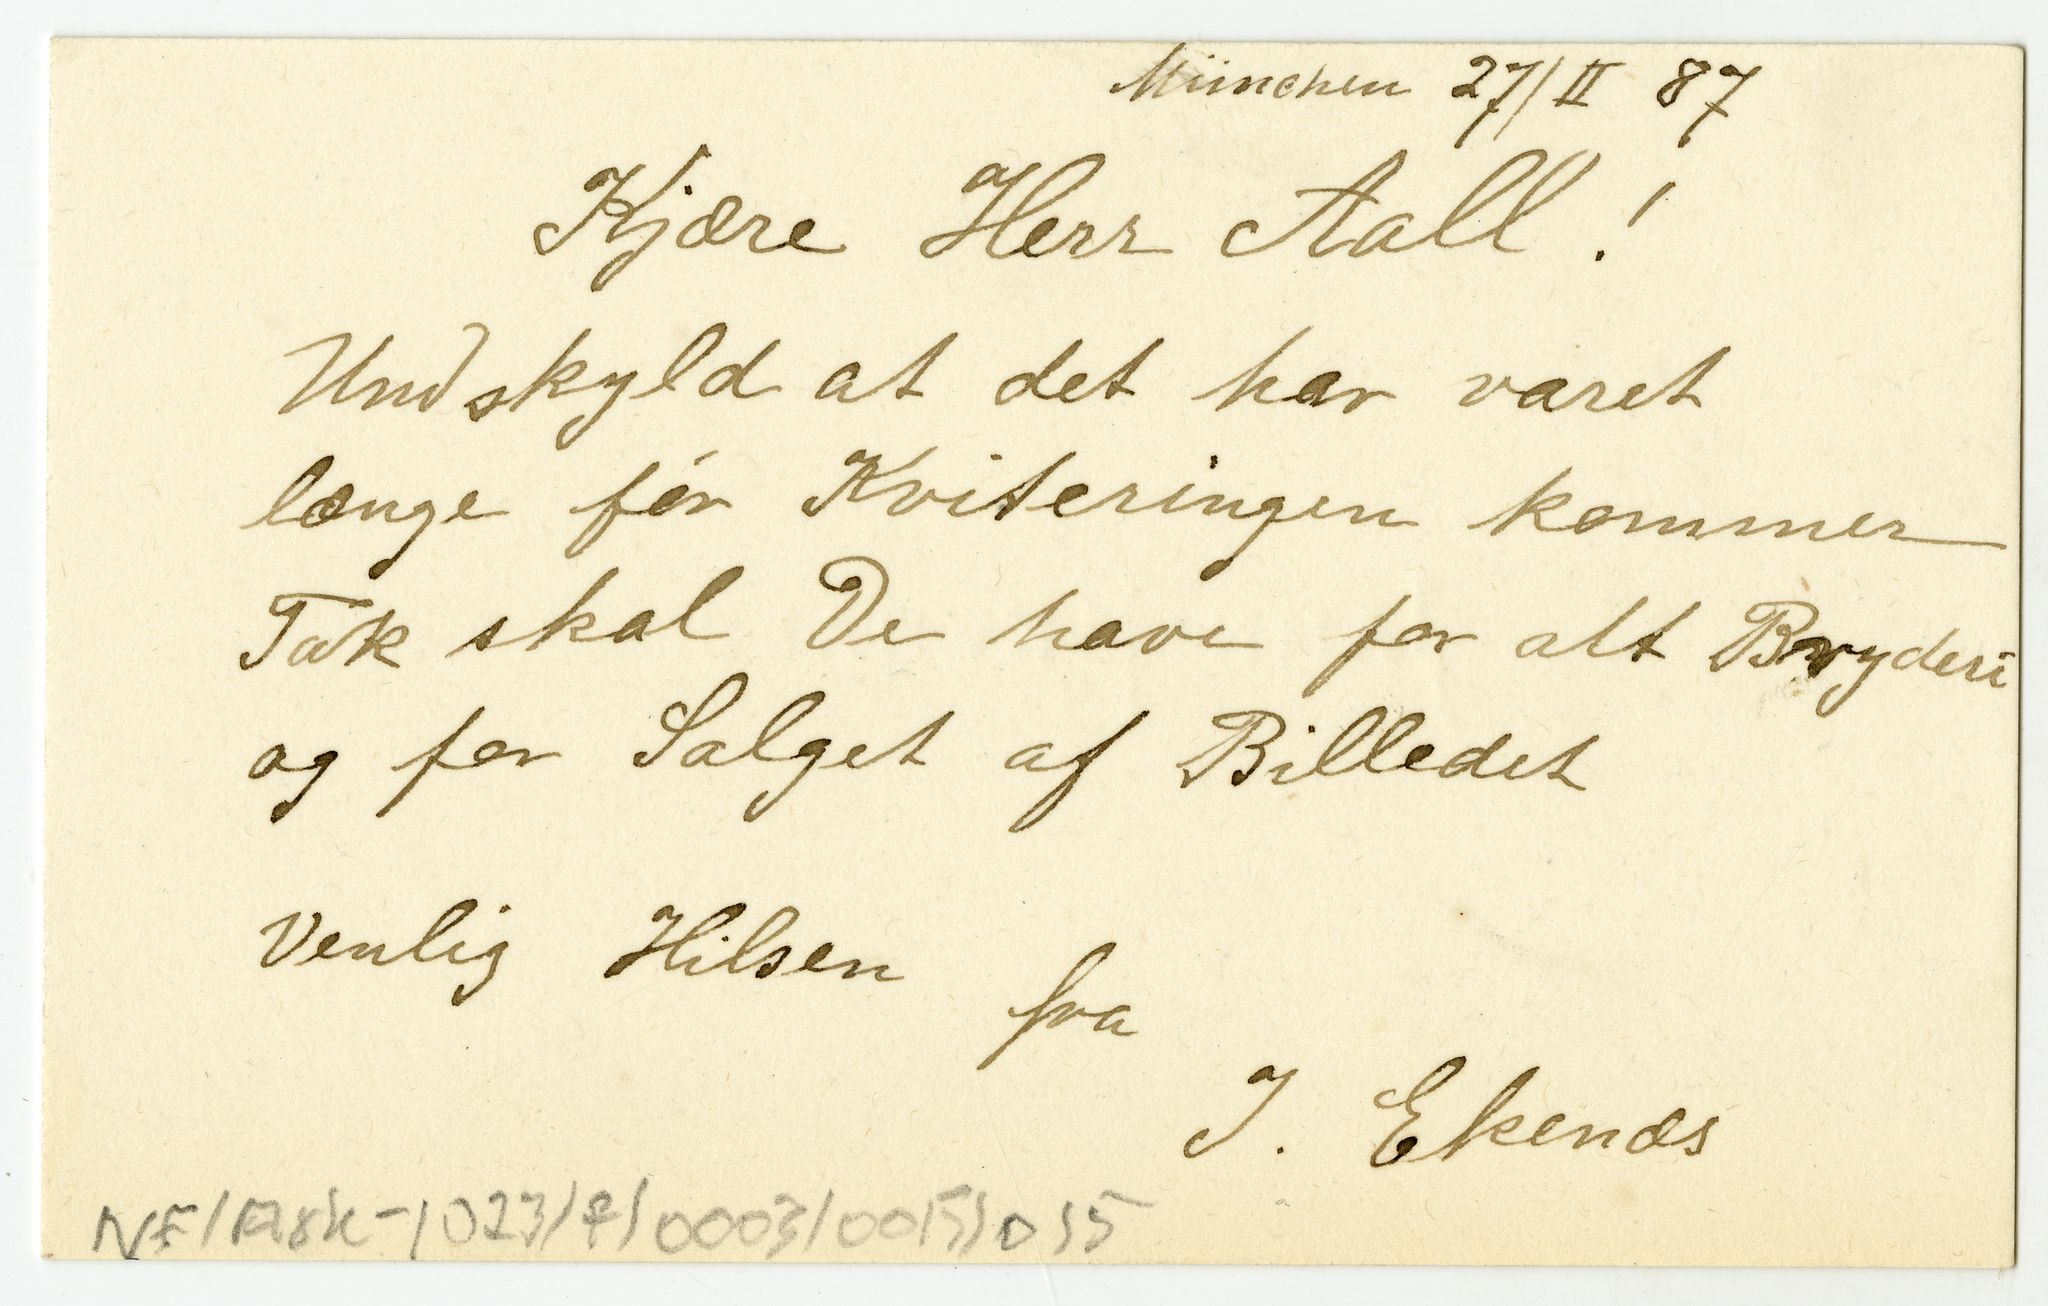 München 27/II 87
Kjære Herr Aall!
Undskyld at det har varet
længe før Kviteringen kommer
Tak skal De have for alt Bryderi
og for Salget af Billedet
Venlig Hilsen
fra
J. Ekenæs
NF/Ark-1023/F/0003/0015/D35